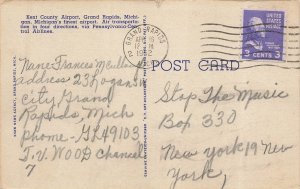 Kent County Airport, Grand Rapids, Michi-
gan. Michigan's finest airport. Air transporta-
tion in four directions, via Pennsylvania-Cen-
tral Airlines.
GRAND RAPIDS
3 CENTS 3
POST CARD
Name Frances McCullough
address 23 Logan St
city Grand
Rapids, Mich
phone-GL49103
T.V. WOOD channel
7
Stop The Music
Box 330
New York 19 New
York,